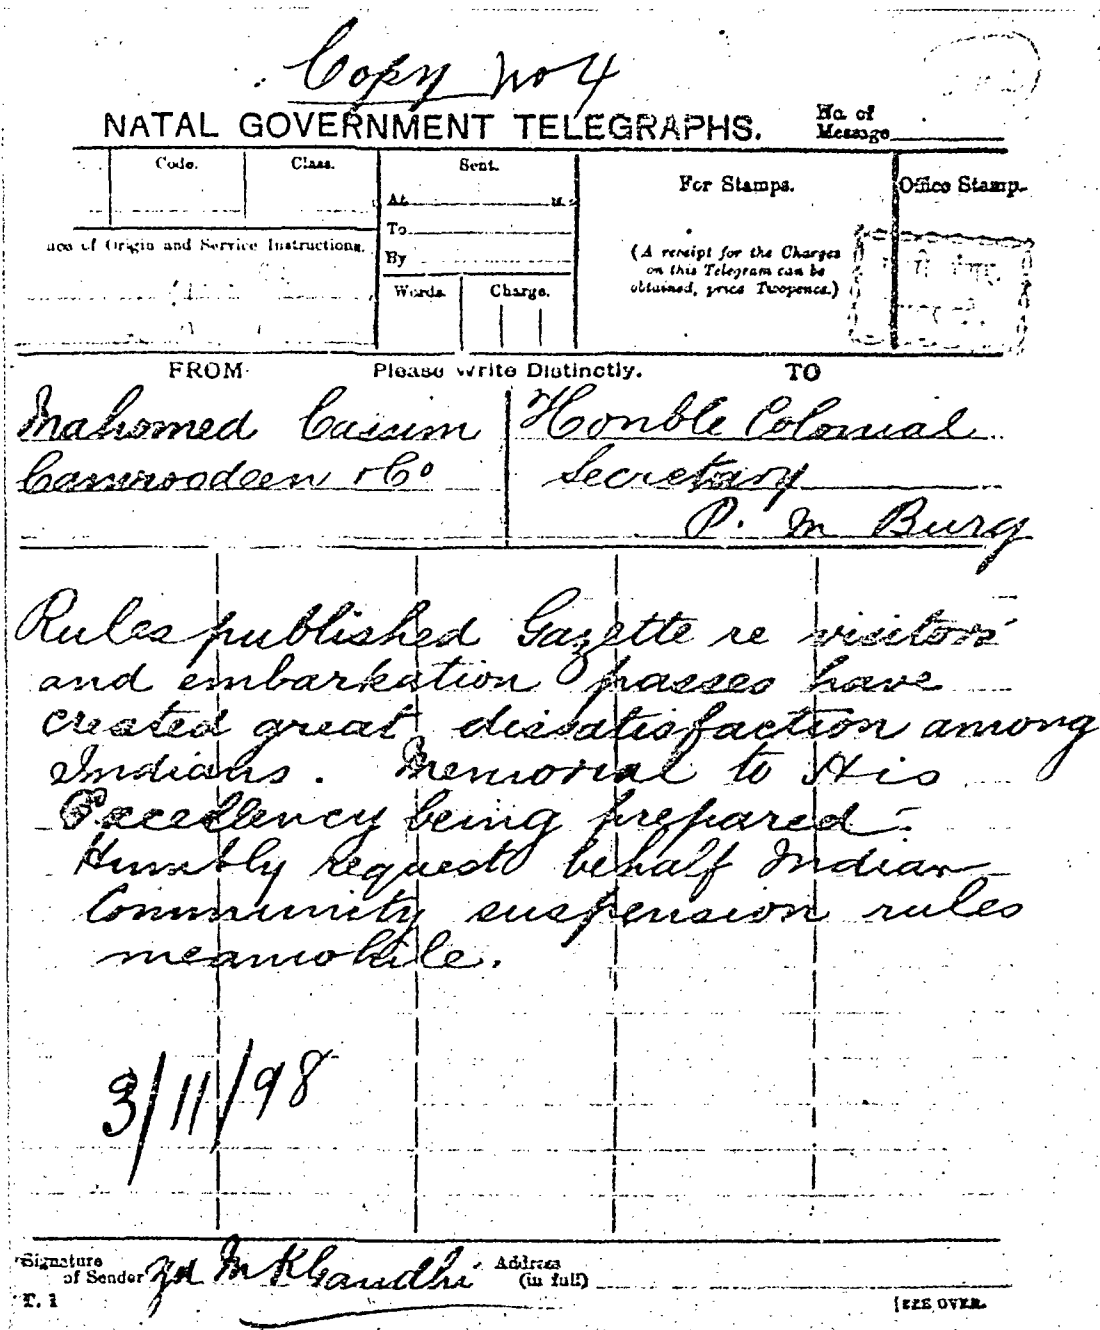 Copy No 4
NATAL GOVERNMENT TELEGRAPHS.
No. of
Message
Code.
Class.
Sent.
At M.
To
By
Words.
Charge.
For Stamps.
(A receipt for the Charges
on this Telegram can be
obtained, price Twopence.)
Office Stamp.
of Origin and Service Instructions.
FROM
Please Write Distinctly.
TO
Mahomed Cassim
Camroodeen & Co
Honble Colonial
Secretary
P. M Burg
Rules published Gazette re visitors'
and embarkation passes have
created great dissatisfaction among
Indians. Memorial to His
Excellency being prepared.
Humbly request behalf Indian
Community suspension rules
meanwhile.
3/11/98
Signature
of Sender
M K Gandhi
Address
(in full)
T. 1
[SEE OVER.